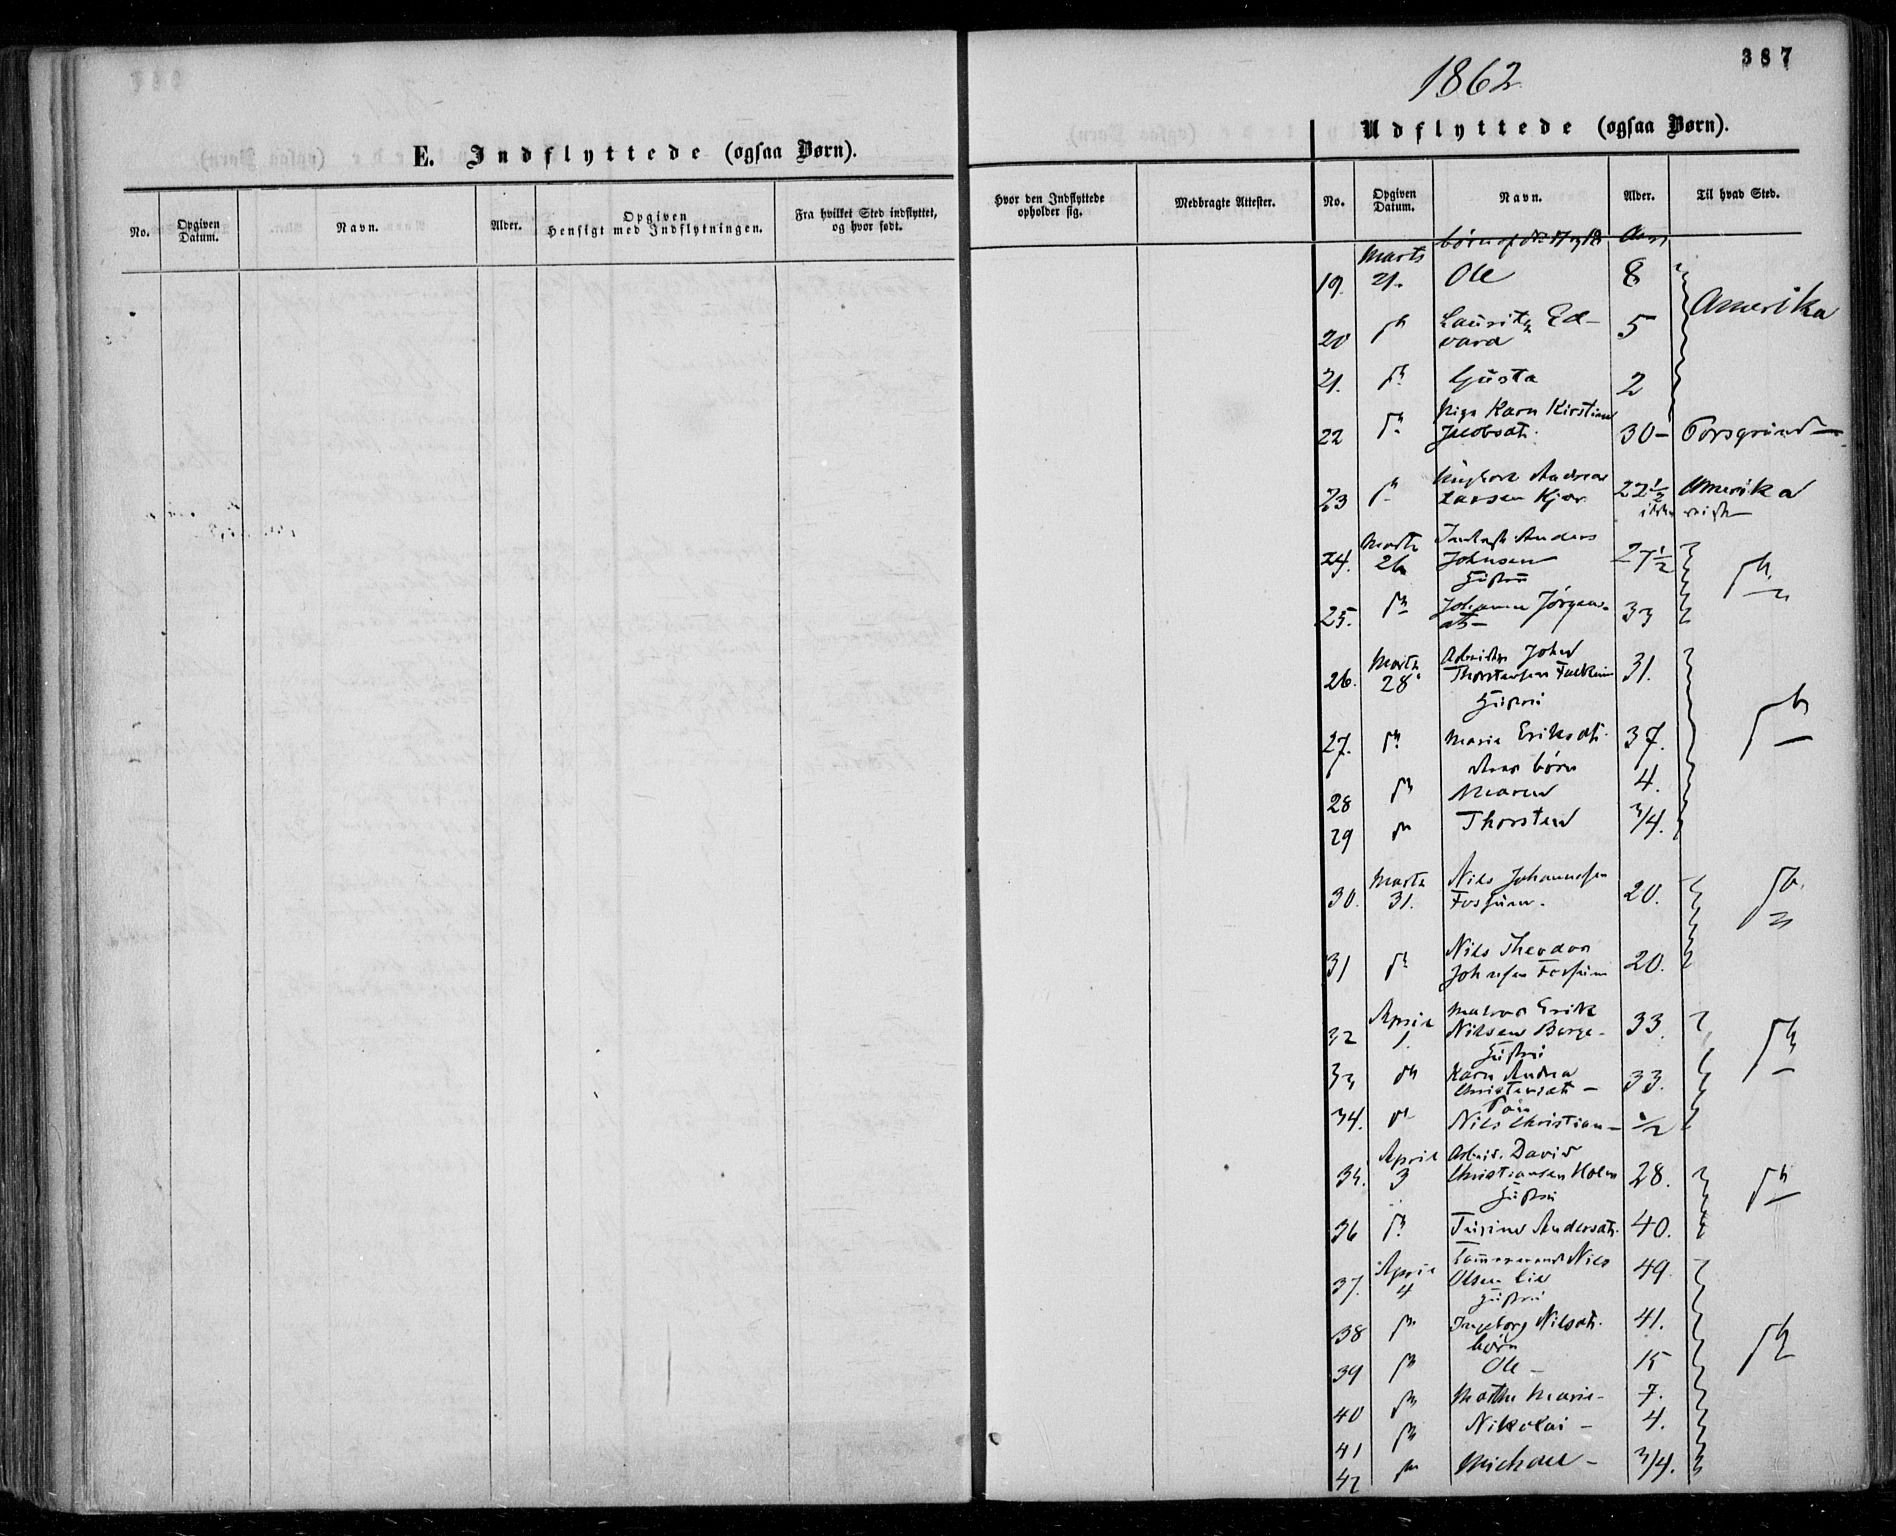 387
1862
E. Indflyttede (ogsaa Børn).
Udflyttede (ogsaa Børn).
No. Opgiven Datum. Navn. Alder. Opgiven Hensigt med Indflytningen. Fra hvilket Sted indflyttet, og hvor født.
Hvor den Indflyttede opholder sig. Medbragte Attester. No. Opgiven Datum. Navn. Alder. Til hvad Sted.
børn af
19. Marts 21. Ole 8 Amerika
20 Lauritz Ed-
vard 5
21. Gusta 2
Pige Karn Kirstine
22 Jacobsdt. 30 - Porsgrund
Ungkarl Andreas
23 Larsen Kjær 22½ Amerika
Marts Anders
24. 26 Johnsen 27½
Hustru
25. Johanne Jørgens-
dt- 33
Marts Arbeider John
26. 28 Thorstensen 31.
Hustru
27. Maria Eriksdt. 37.
børn
28 Maren 4.
29 Thorsten 3/4.
Marts Nils Johannesen
30. 31. Fossum. 20.
Nils Theodor
31 Johnsen Fossum 20.
April Matros Erik
32 1 Nilsen Borge - 33.
Hustru
33 Karn Andrea
Christensdt - 33.
34. Nils Christian - ½
April Arbeid. David
35. 3 Christiansen Holm 28.
Hustru
36 Andersdt. 40.
April Tømmermand Nils
37. 4 Olsen Lie 49.
Hustru
38 Ingeborg Nilsdt. 41.
børn
39 Ole - 15
40 Marthe Marie - 7.
41 Nikolai - 4.
42 Michael - 3/4.